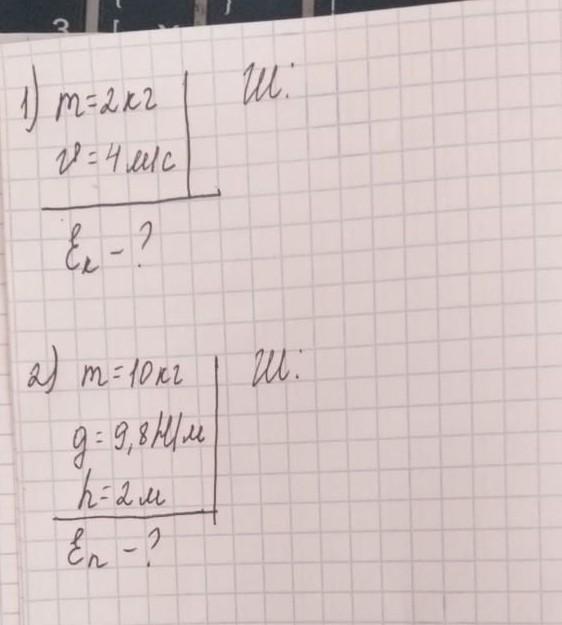 3 [
1) m=2кг Ш:
v=4 м/с
Eк - ?
2) m=10кг Ш:
g=9,8Н/м
h=2м
Eп - ?